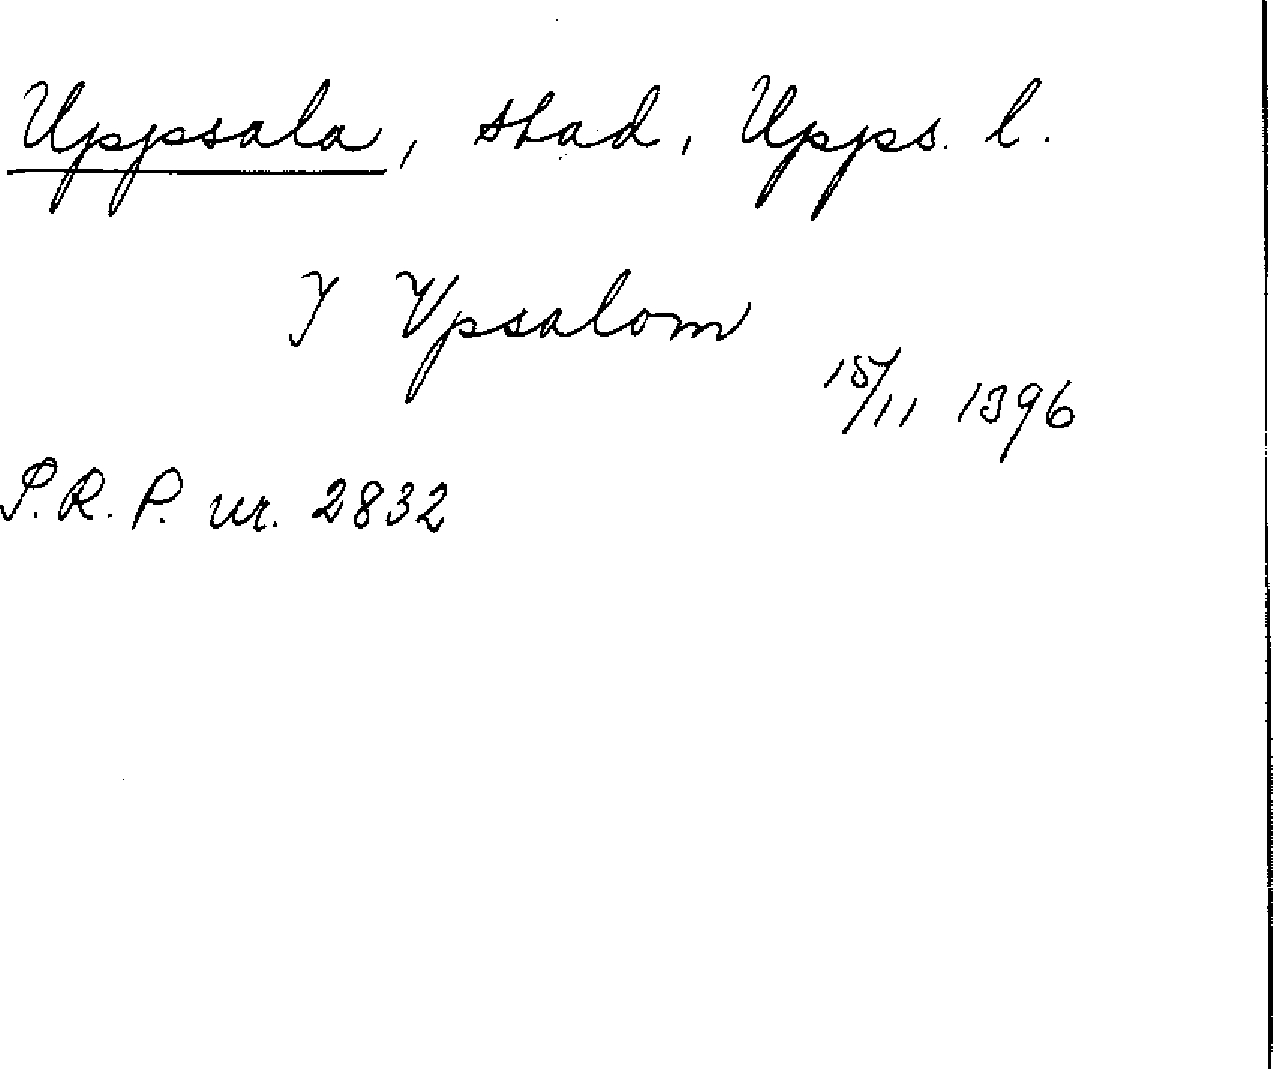 Uppsala, stad, Upps. l.
J Vpsalom
15/11 1396
P.R.P. nr. 2832